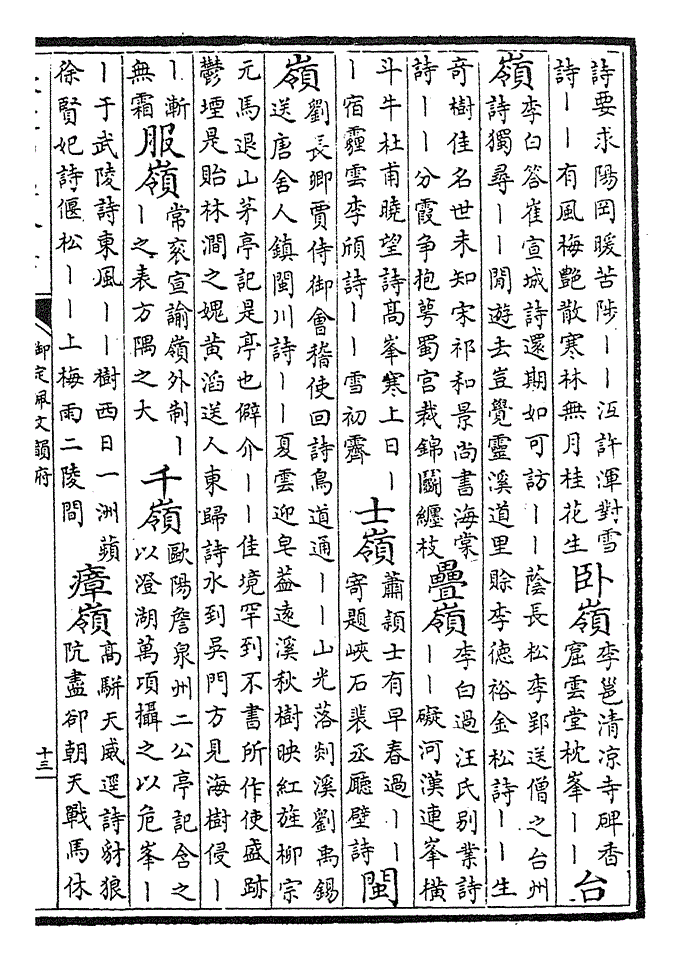 詩要求陽岡暖苦陟丨丨沍許渾對雪
詩丨丨有風梅艶散寒林無月桂花生
卧嶺
李邕清凉寺碑香
窟雲堂枕峯丨丨
台
嶺
李白答崔宣城詩還期如可訪丨丨蔭長松李郢送僧之台州
詩獨尋丨丨閒遊去豈覺靈溪道里賖李德裕金松詩丨丨生
奇樹佳名世未知宋祁和景尚書海棠
詩丨丨分霞爭抱萼蜀宫裁錦鬭纏枝
疊嶺
李白過汪氏别業詩
丨丨礙河漢連峯橫
斗牛杜甫曉望詩高峯寒上日丨
丨宿霾雲李頎詩丨丨雪初霽
士嶺
蕭頴士有早春過丨丨
寄題峽石裴丞廳壁詩
閩
嶺
劉長卿賈侍御會稽使回詩鳥道通丨丨山光落剡溪劉禹錫
送唐舍人鎮閩川詩丨丨夏雲迎皂葢逺溪秋樹映紅旌柳宗
元馬退山茅亭記是亭也僻介丨丨佳境罕到不書所作使盛跡
鬱堙是貽林澗之媿黄滔送人東歸詩水到吳門方見海樹侵丨
丨漸
無霜
服嶺
常衮宣諭嶺外制丨
丨之表方隅之大
千嶺
歐陽詹泉州二公亭記含之
以澄湖萬頃攝之以危峯丨
丨于武陵詩東風丨丨樹西日一洲蘋
徐賢妃詩偃松丨丨上梅雨二陵間
瘴嶺
高駢天威逕詩豺狼
阬盡卻朝天戰馬休
御定佩文韻府
十三